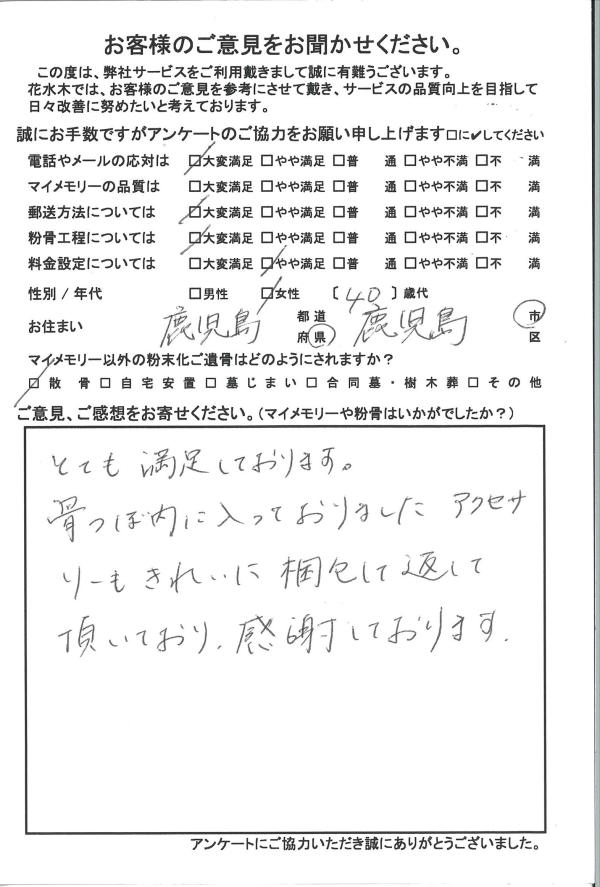 お客様のご意見をお聞かせください。
この度は、弊社サービスをご利用戴きまして誠に有難うございます。
花水木では、お客様のご意見を参考にさせて戴き、サービスの品質向上を目指して
日々改善に努めたいと考えております。
誠にお手数ですがアンケートのご協力をお願い申し上げます□に✔してください
電話やメールの応対は □大変満足 □やや満足 □普 通 □やや不満 □不 満
マイメモリーの品質は □大変満足 □やや満足 □普 通 □やや不満 □不 満
郵送方法については □大変満足 □やや満足 □普 通 □やや不満 □不 満
粉骨工程については □大変満足 □やや満足 □普 通 □やや不満 □不 満
料金設定については □大変満足 □やや満足 □普 通 □やや不満 □不 満
性別 / 年代 □男性 □女性 〔 40 〕歳代
お住まい 鹿児島 都道府県 鹿児島 市区
マイメモリー以外の粉末化ご遺骨はどのようにされますか？
□散 骨 □自宅安置 □墓じまい □合同墓・樹木葬 □その他
ご意見、ご感想をお寄せください。（マイメモリーや粉骨はいかがでしたか？）
とても満足しております。
骨つぼ内に入っておりました アクセサ
リーもきれいに梱包して返して
頂いており、感謝しております.
アンケートにご協力いただき誠にありがとうございました。